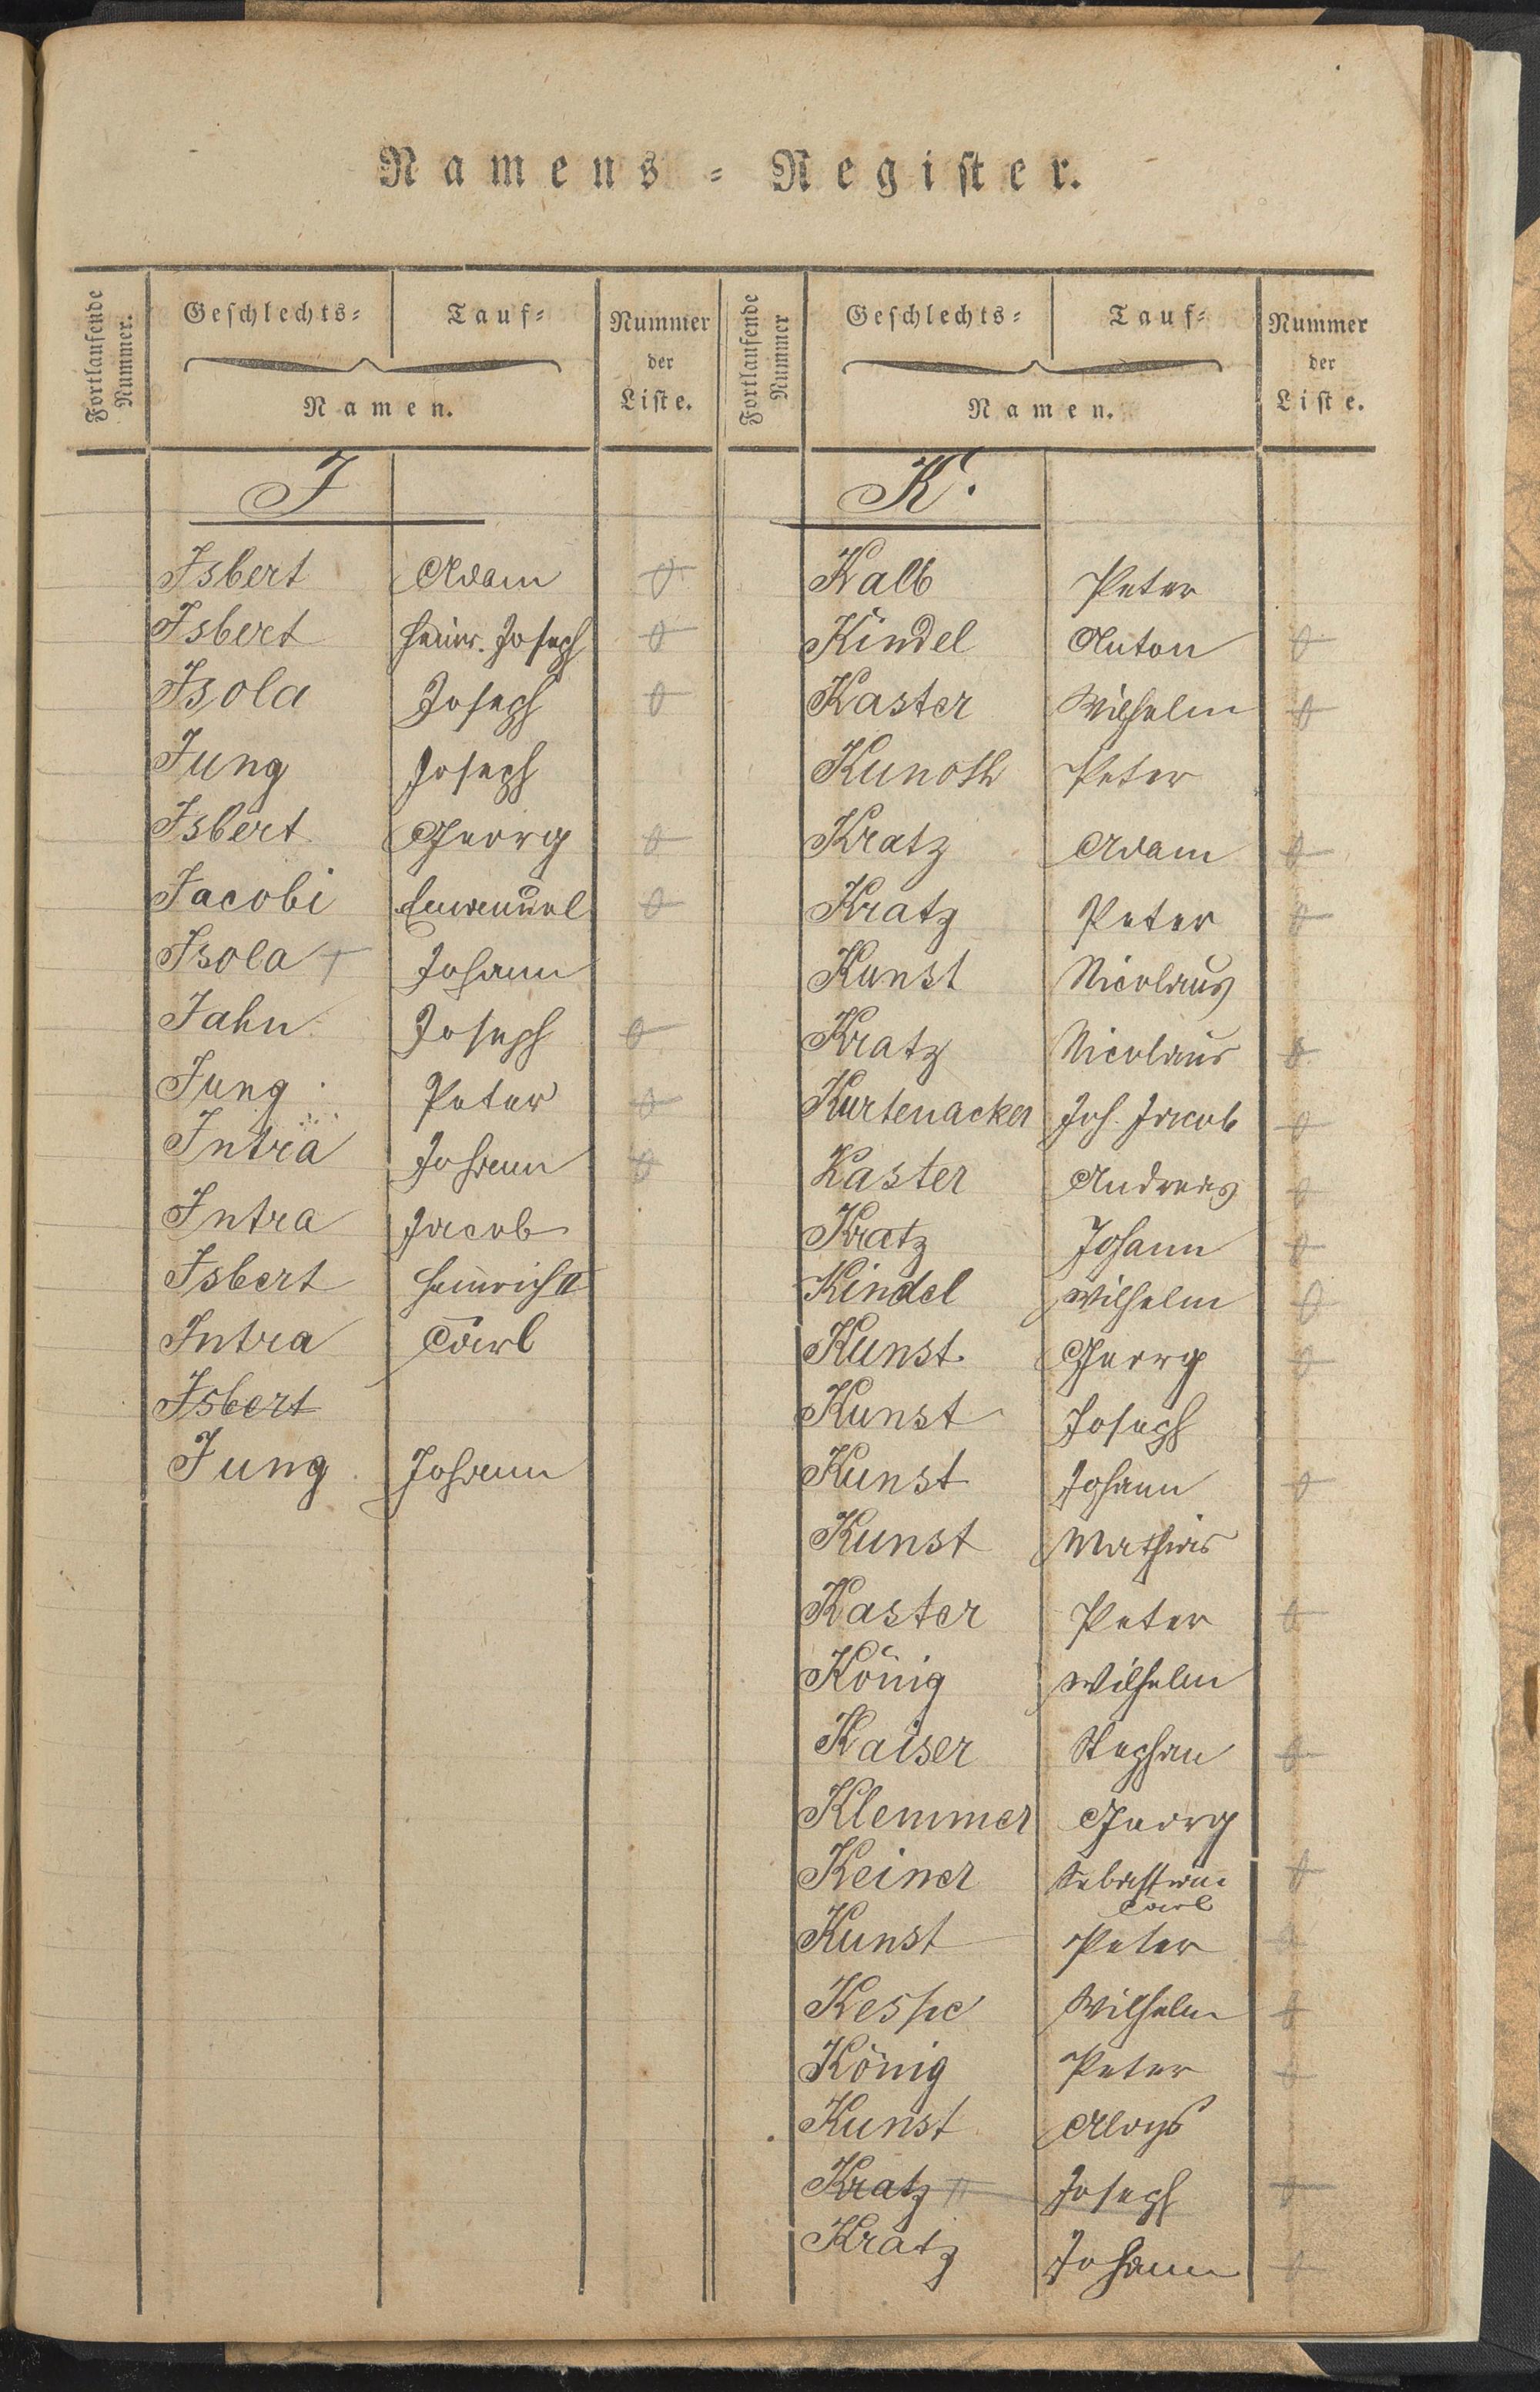 Namens-Register.
Fortlaufende Nummer.
Geschlechts-
Tauf-
Namen.
Nummer der Liste.
Fortlaufende Nummer
Geschlechts-
Tauf-
Namen.
Nummer der Liste.
J
Isbert Adam
Isbert Heinr. Joseph
Isola Joseph
Jung Joseph
Isbert Georg
Jacobi Emanuel
Isola Johann
Jahn Joseph
Jung Peter
Intra Johann
Intra Jacob
Isbert Heinrich II
Intra Carl
Isbert
Jung Johann
K.
Kalb Peter
Kindel Anton
Kaster Wilhelm
Kunoth Peter
Kratz Adam
Kratz Peter
Kunst Nicolaus
Kratz Nicolaus
Kurtenacker Joh. Jacob
Kaster Andreas
Kratz Johann
Kindel Wilhelm
Kunst Georg
Kunst Joseph
Kunst Johann
Kunst Mathias
Kaster Peter
König Wilhelm
Kaiser Stephan
Klemmer Georg
Keiner Sebastian
Carl
Kunst Peter
Kespe Wilhelm
König Peter
Kunst Aloys
Kratz Joseph
Kratz Johann